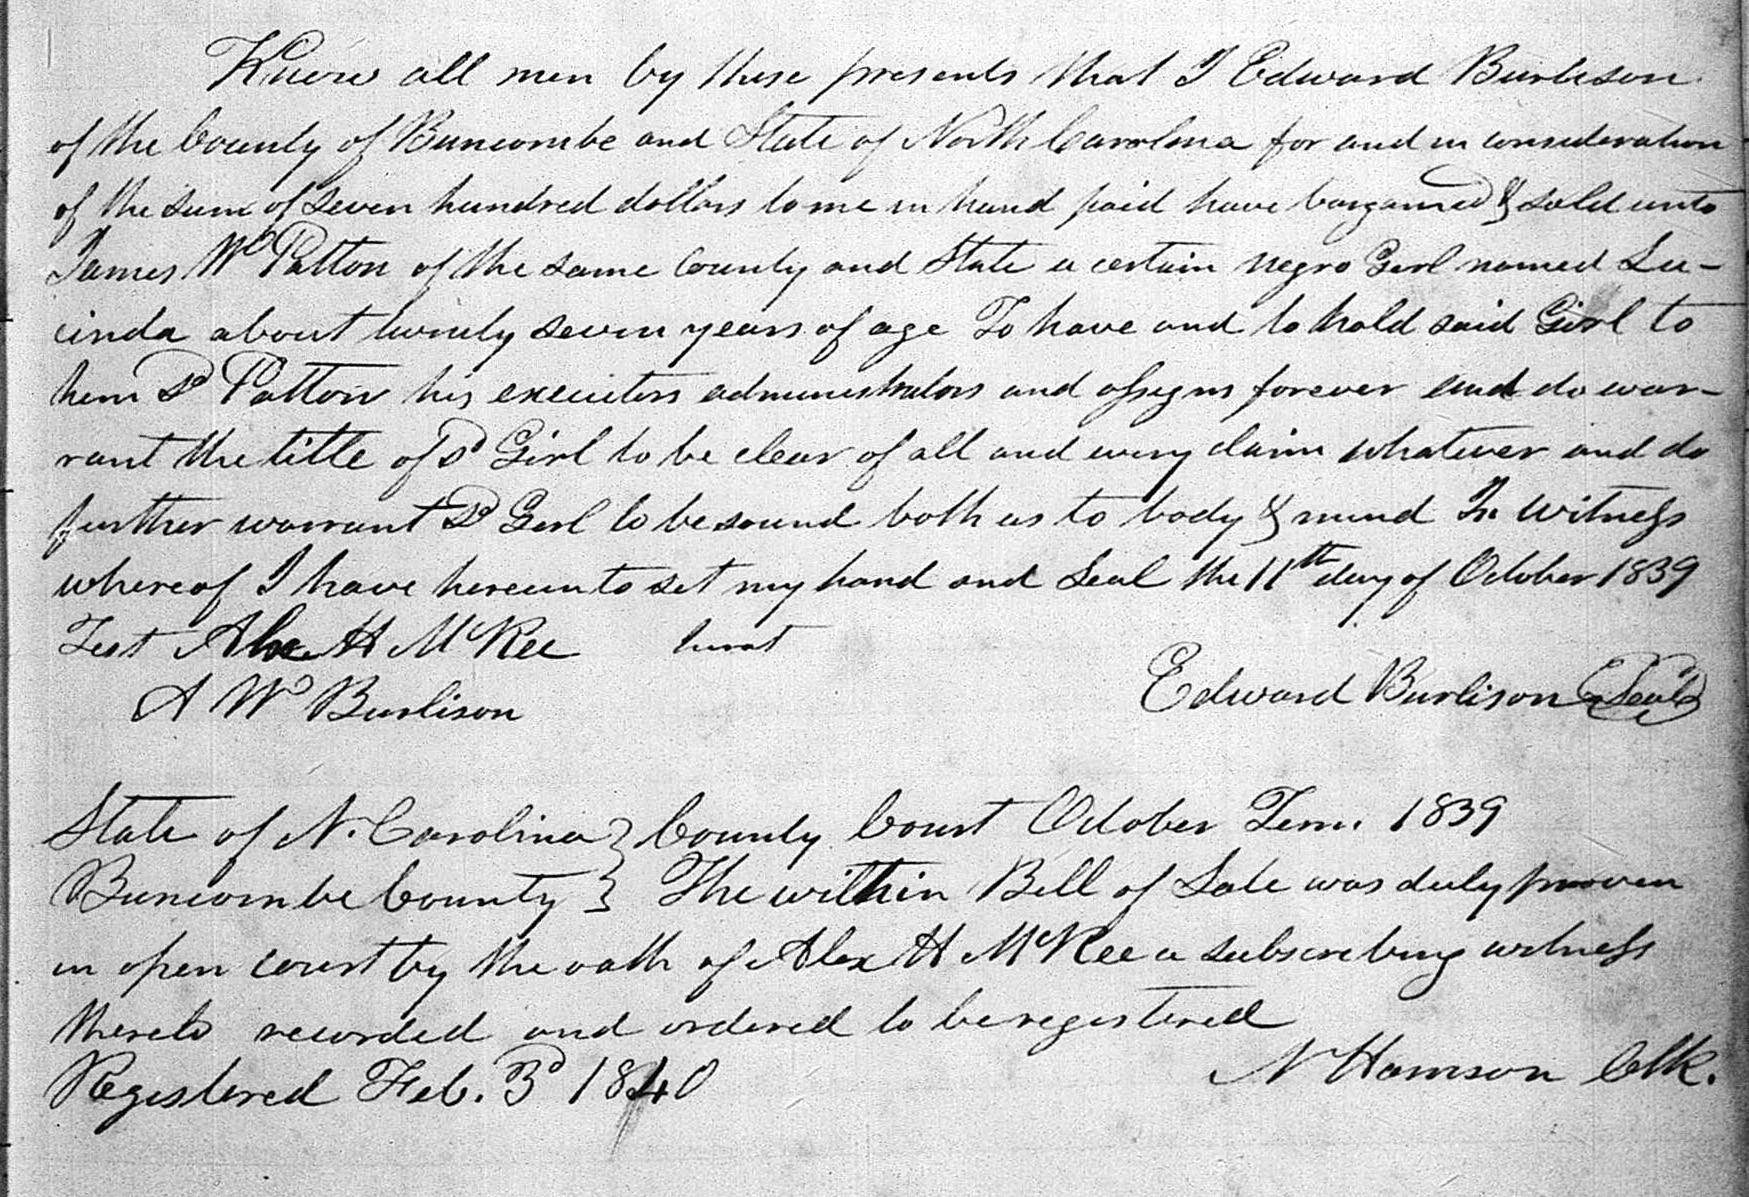 Know all men by these presents that I Edward Burleson
of the County of Buncombe and State of North Carolina for and in consideration
of the sum of seven hundred dollars to me in hand paid have bargained & sold unto
James W Patton of the same County and State a certain negro Girl named Lu-
cinda about twenty seven years of age To have and to hold said Girl to
him Sd Patton his executors administrators and assigns forever and do war-
rant the title of Sd Girl to be clear of all and every claim whatever and do
further warrant Sd Girl to be sound both as to body & mind In Witness
whereof I have hereunto set my hand and Seal the 11th day of October 1839
Test Alex H McKee Jurat
A W Burlison
Edward Burlison (Seal)
State of N. Carolina } County Court October Term. 1839
Buncombe County } The within Bill of Sale was duly proven
in open court by the oath of Alex H McKee a subscribing witness
thereto recorded and ordered to be registered
N Harrison Clk.
Registered Feb. 3d 1840